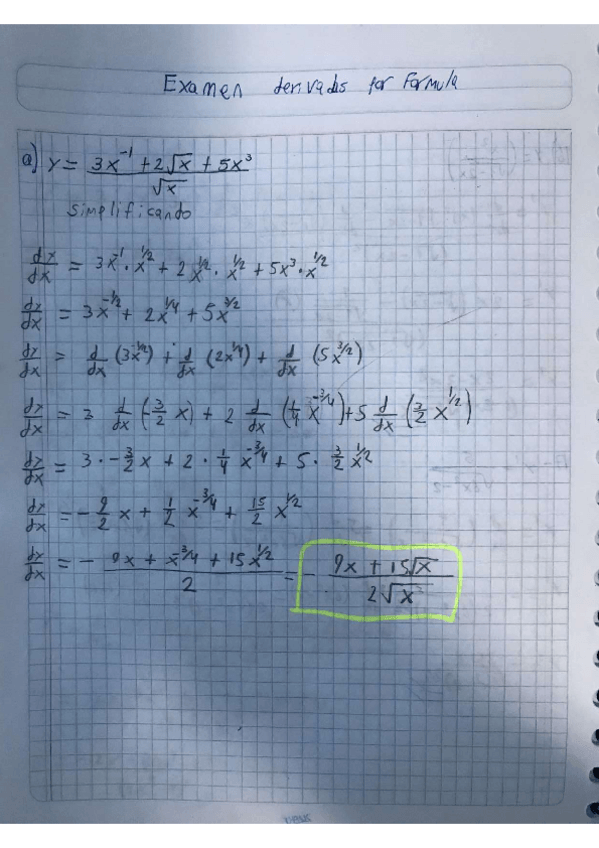 Examen derivadas por Formula
a) y = (3x^-1 + 2√x + 5x^3) / √x
simplificando
dx/dx = 3x^-1 · x^1/2 + 2x^1/2 · x^1/2 + 5x^3 · x^1/2
dy/dx = 3x^-1/2 + 2x^1/4 + 5x^3/2
dy/dx = d/dx (3x^-1/2) + d/dx (2x^1/4) + d/dx (5x^3/2)
dy/dx = 3 d/dx (-3/2 x) + 2 d/dx (1/4 x^-3/4) + 5 d/dx (3/2 x^1/2)
dy/dx = 3 · -3/2 x + 2 · 1/4 x^-3/4 + 5 · 3/2 x^1/2
dy/dx = -9/2 x + 1/2 x^-3/4 + 15/2 x^1/2
dy/dx = - (9x + x^-3/4 + 15x^1/2) / 2 = - (9x + 15√x) / (2√x)